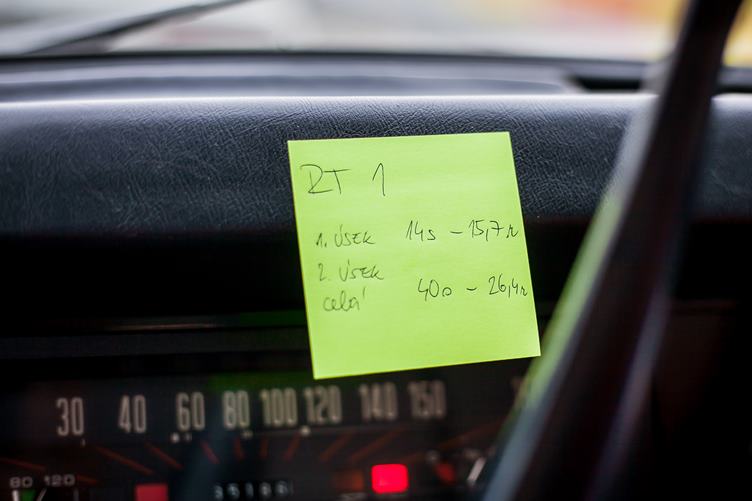 RT 1
1. ÚSEK 14s – 15,7
2. ÚSEK
celá 40s – 26,4
30 40 60 80 100 120 140 150
80 120